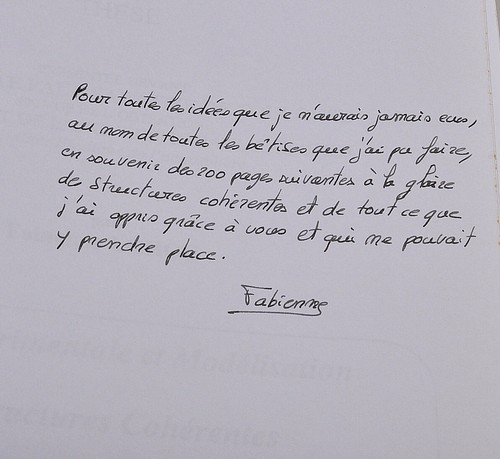 Pour toutes les idées que je n'aurais jamais eues,
au nom de toutes les bêtises que j'ai pu faire,
en souvenir des 200 pages suivantes à la gloire
de structures cohérentes et de tout ce que
j'ai appris grâce à vous et qui ne pouvait
y prendre place.
Fabienne
rimentale et Modélisation
ructures Cohérentes